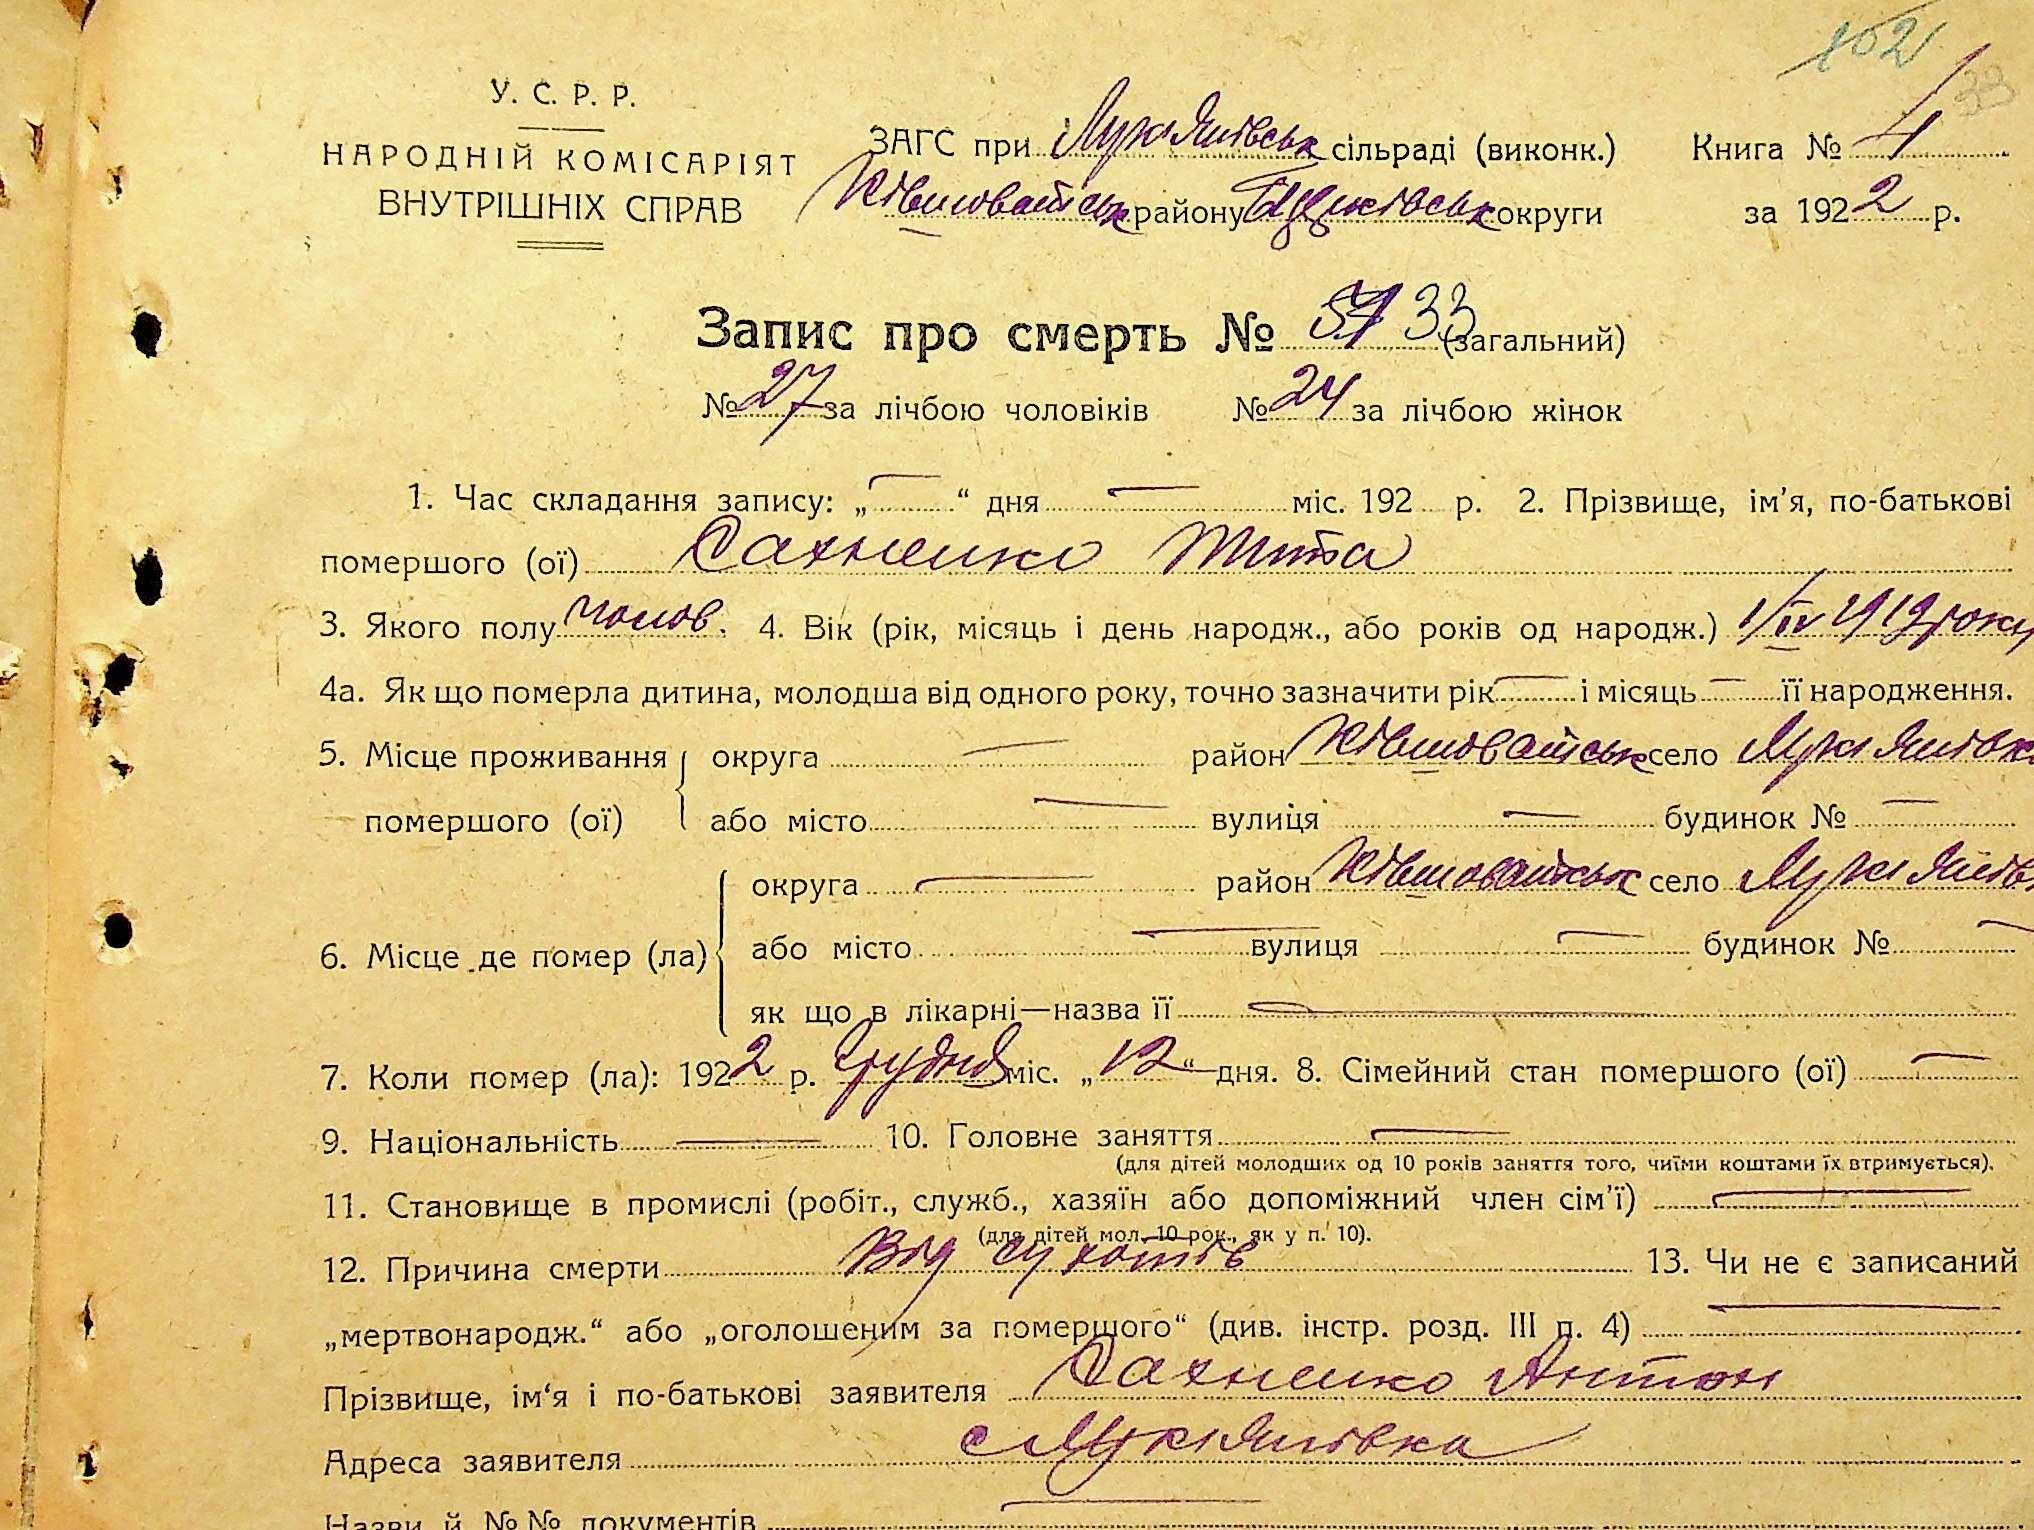 102
33
У. С. Р. Р.
НАРОДНІЙ КОМІСАРІЯТ
ВНУТРІШНІХ СПРАВ
ЗАГС при Лукіянівськ сільраді (виконк.) Книга № 4
Ківшоватськ району округи за 1922 р.
Запис про смерть № 51 33 (загальний)
№ 27 за лічбою чоловіків № 24 за лічбою жінок
1. Час складання запису: „ — “ дня — міс. 192 р. 2. Прізвище, ім’я, по-батькові
помершого (ої) Сахненко Тита
3. Якого полу чолов. 4. Вік (рік, місяць і день народж., або років од народж.) 1/IV 1919 року
4а. Як що померла дитина, молодша від одного року, точно зазначити рік — і місяць — її народження.
5. Місце проживання округа — район Ківшоватськ село Лукіянівка
помершого (ої) або місто — вулиця — будинок № —
округа — район Ківшоватськ село Лукіянівк
6. Місце де помер (ла) або місто — вулиця — будинок № —
як що в лікарні—назва її —
7. Коли помер (ла): 1922 р. Грудня міс. „12“ дня. 8. Сімейний стан помершого (ої) —
9. Національність — 10. Головне заняття —
(для дітей молодших од 10 років заняття того, чиїми коштами їх втримується).
11. Становище в промислі (робіт., служб., хазяїн або допоміжний член сім’ї) —
(для дітей мол. 10 рок., як у п. 10).
12. Причина смерти Від сухотів 13. Чи не є записаний
„мертвонародж.“ або „оголошеним за помершого“ (див. інстр. розд. III п. 4) —
Прізвище, ім‘я і по-батькові заявителя Сахненко Антон
Адреса заявителя с Лукіянівка
Назви й №№ документів —